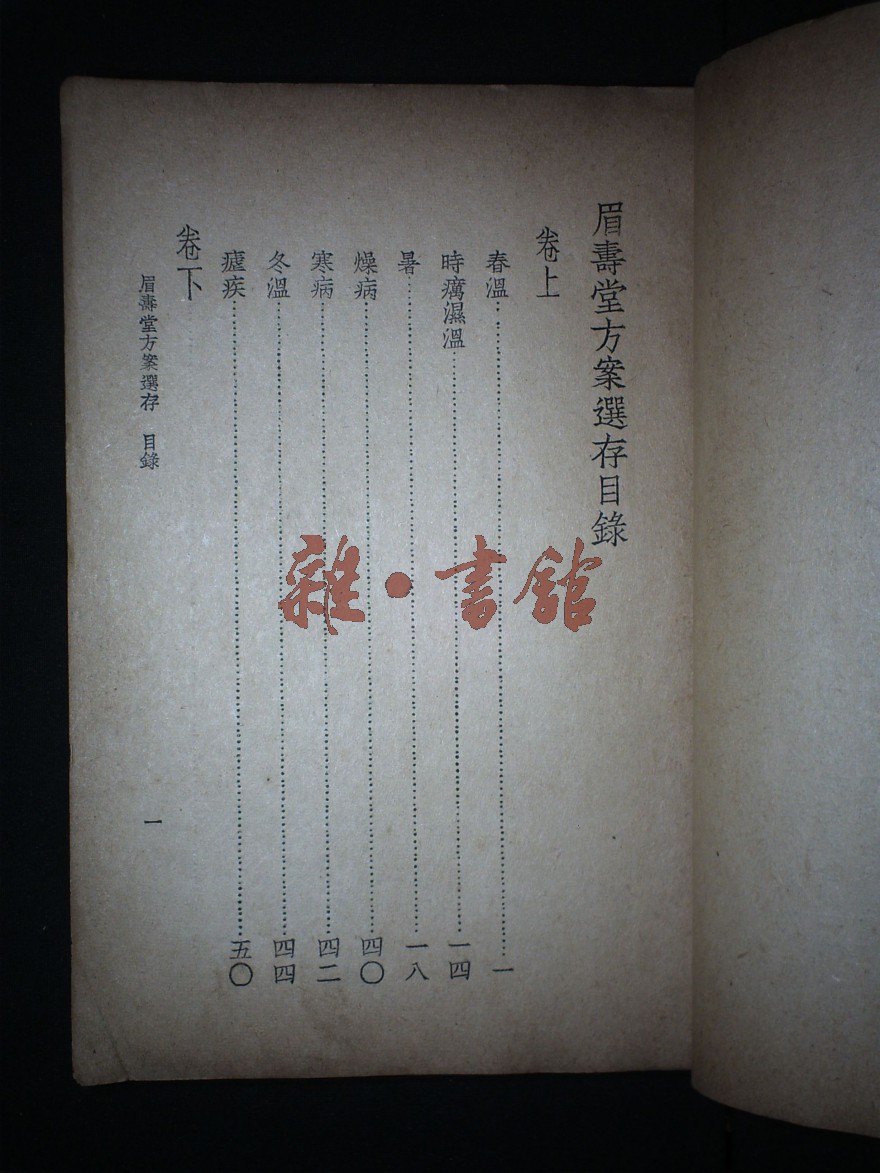 眉壽堂方案選存目錄
卷上
春溫 一
時癘濕溫 一四
暑 一八
燥病 四〇
寒病 四二
冬溫 四四
瘧疾 五〇
卷下
眉壽堂方案選存 目錄
一
雜·書館